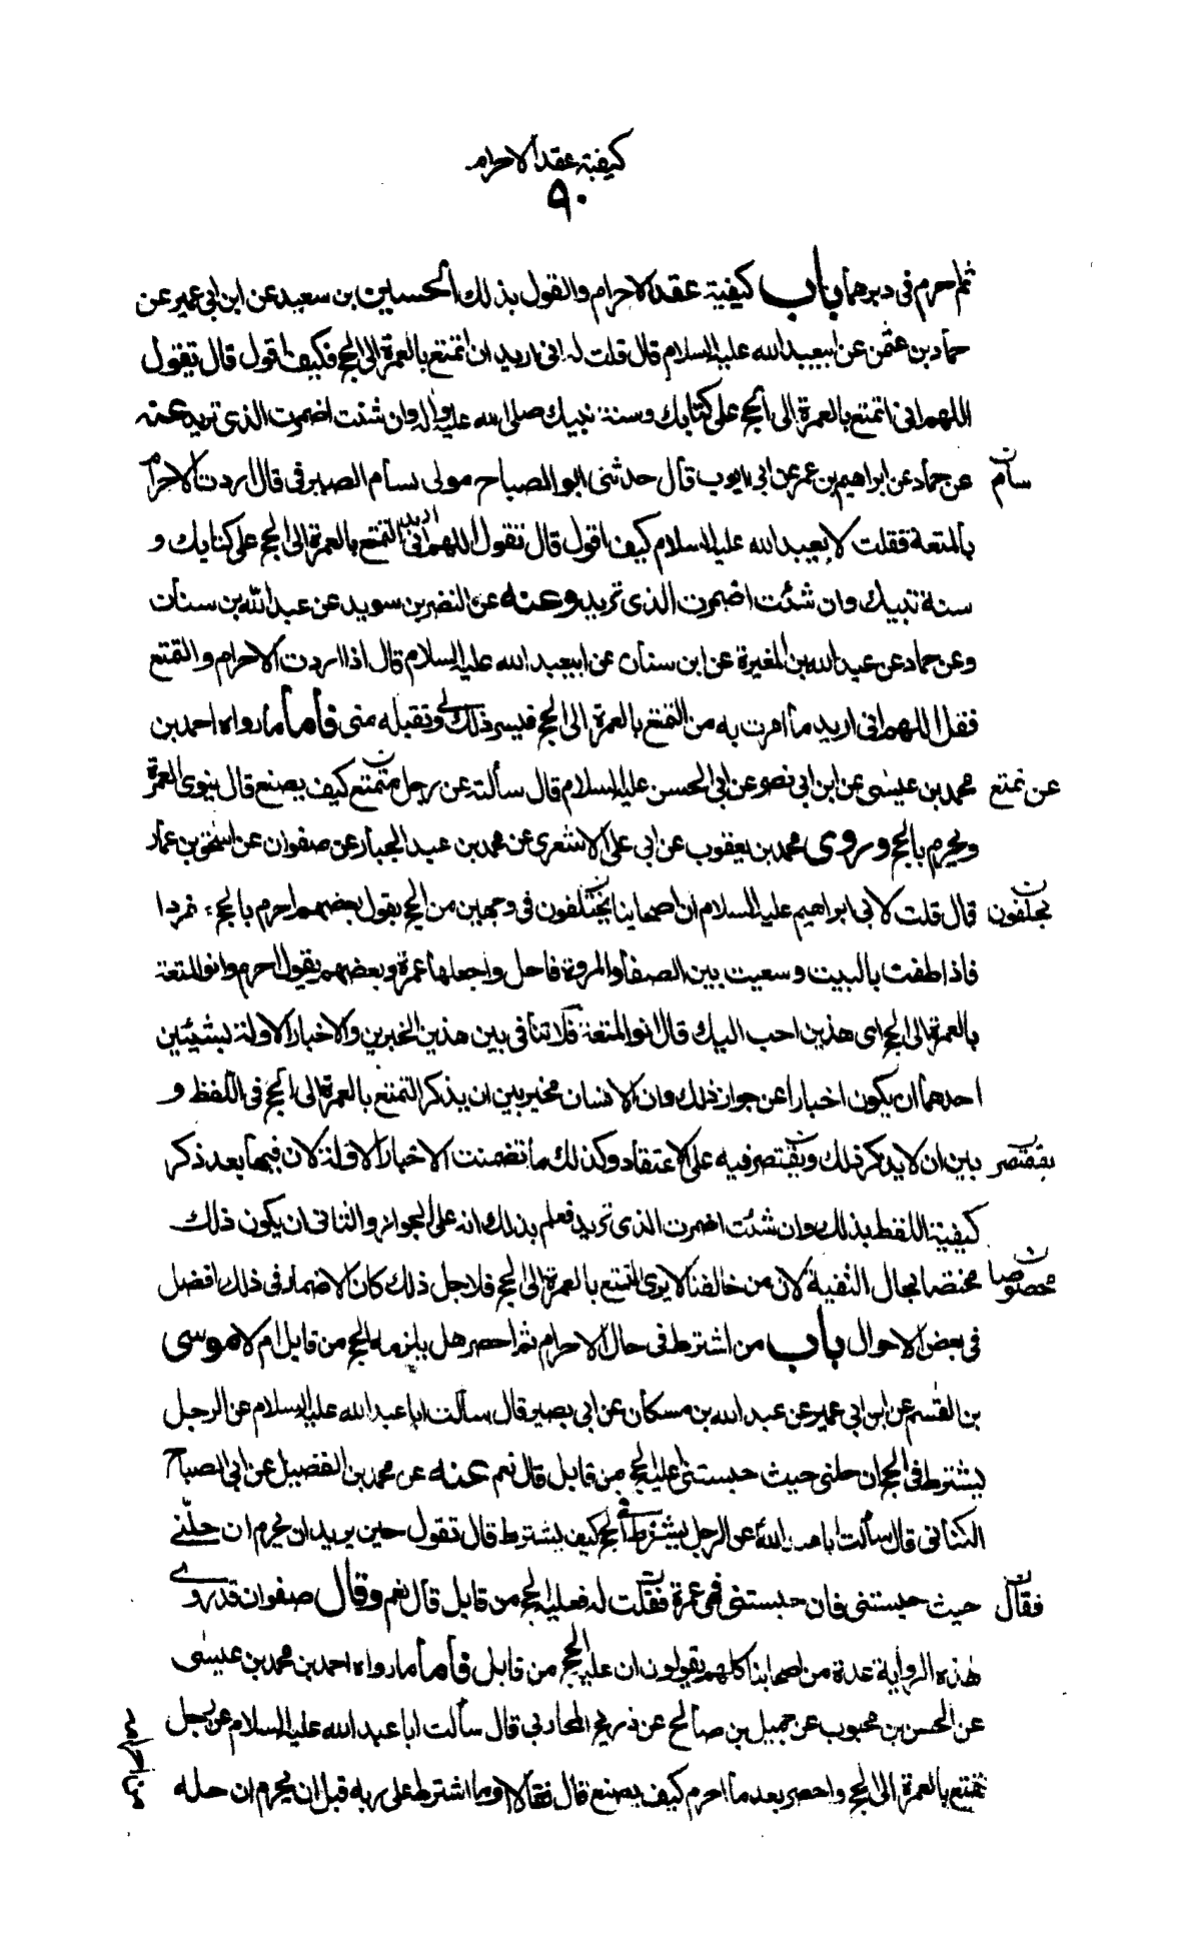 كيفية عقد الاحرام
٩٠
ثم احرم فى دبرهما باب كيفية عقد الاحرام والقول بذلك الحسين بن سعيد عن ابن ابى عمير عن
حماد بن عثمن عن ابيعبد الله عليه السلام قال قلت له انى اريد ان اتمتع بالعمرة الى الحج فكيف اقول قال تقول
اللهم انى اتمتع بالعمرة الى الحج على كتابك وسنة نبيك صلى الله عليه واله وان شئت اضمرت الذى تريد عنه
سام
عن حماد عن ابراهيم بن عمر عن ابى ايوب قال حدثنى ابو الصباح مولى بسام الصيرفى قال اردت الاحرام
بالمتعة فقلت لابيعبد الله عليه السلام كيف اقول قال تقول اللهم انى اريد التمتع بالعمرة الى الحج على كتابك و
سنة نبيك وان شئت اضمرت الذى تريد وعنه عن النضر بن سويد عن عبد الله بن سنان
وعن حماد عن عبد الله بن المغيرة عن ابن سنان عن ابيعبد الله عليه السلام قال اذا اردت الاحرام والتمتع
فقل اللهم انى اريد ما امرت به من التمتع بالعمرة الى الحج فيسر ذلك لى وتقبله منى فأما ما رواه احمد بن
عن تمتع
محمد بن عيسى عن ابن ابى نصر عن ابى الحسن عليه السلام قال سألته عن رجل متمتع كيف يصنع قال ينوى العمرة
ويحرم بالحج وروى محمد بن يعقوب عن ابى على الاشعرى عن محمد بن عبد الجبار عن صفوان عن اسحق بن عمار
يختلفون
قال قلت لابى ابراهيم عليه السلام ان اصحابنا يختلفون فى وجهين من الحج يقول بعضهم احرم بالحج مفردا
فاذا طفت بالبيت وسعيت بين الصفا والمروة فاحل واجعلها عمرة وبعضهم يقول احرم وانو المتعة
بالعمرة الى الحج اى هذين احب اليك قال انو المتعة فلا تنافى بين هذين الخبرين والاخبار الاولة لشيئين
احدهما ان يكون اخبارا عن جواز ذلك وان الانسان مخير بين ان يذكر التمتع بالعمرة الى الحج فى اللفظ و
يقتصر
بين ان لا يذكر ذلك ويقتصر فيه على الاعتقاد وكذلك ما تضمنت الاخبار الاولة لان فيها بعد ذكر
كيفية اللفظ بذلك وان شئت اضمرت الذى تريد فعلم بذلك انه على الجواز والثانى ان يكون ذلك
مخصوصا
مختصا بحال التقية لان من خالفنا لا يرى التمتع بالعمرة الى الحج فلاجل ذلك كان الاضمار فى ذلك افضل
فى بعض الاحوال باب من اشترط فى حال الاحرام ثم احصر هل يلزمه الحج من قابل ام لا موسى
بن القسم عن ابن ابى عمير عن عبد الله بن مسكان عن ابى بصير قال سألت ابا عبد الله عليه السلام عن الرجل
يشترط فى الحج ان حلنى حيث حبستنى اعليه الحج من قابل قال نعم عنه عن محمد بن الفضيل عن ابى الصباح
الكنانى قال سألت ابا عبد الله عن الرجل يشترط فى الحج كيف يشترط قال تقول حين يريد ان يحرم ان حلنى
فقال
حيث حبستنى فان حبستنى فهى عمرة فقلت له فعليه الحج من قابل قال نعم وقال صفوان قد روى
هذه الرواية عدة من اصحابنا كلهم يقولون ان عليه الحج من قابل فأما ما رواه احمد بن محمد بن عيسى
عن الحسن بن محبوب عن جميل بن صالح عن ذريح المحاربى قال سألت ابا عبد الله عليه السلام عن رجل
تمتع بالعمرة الى الحج واحصر بعد ما احرم كيف يصنع قال فقال او ما اشترط على ربه قبل ان يحرم ان حله